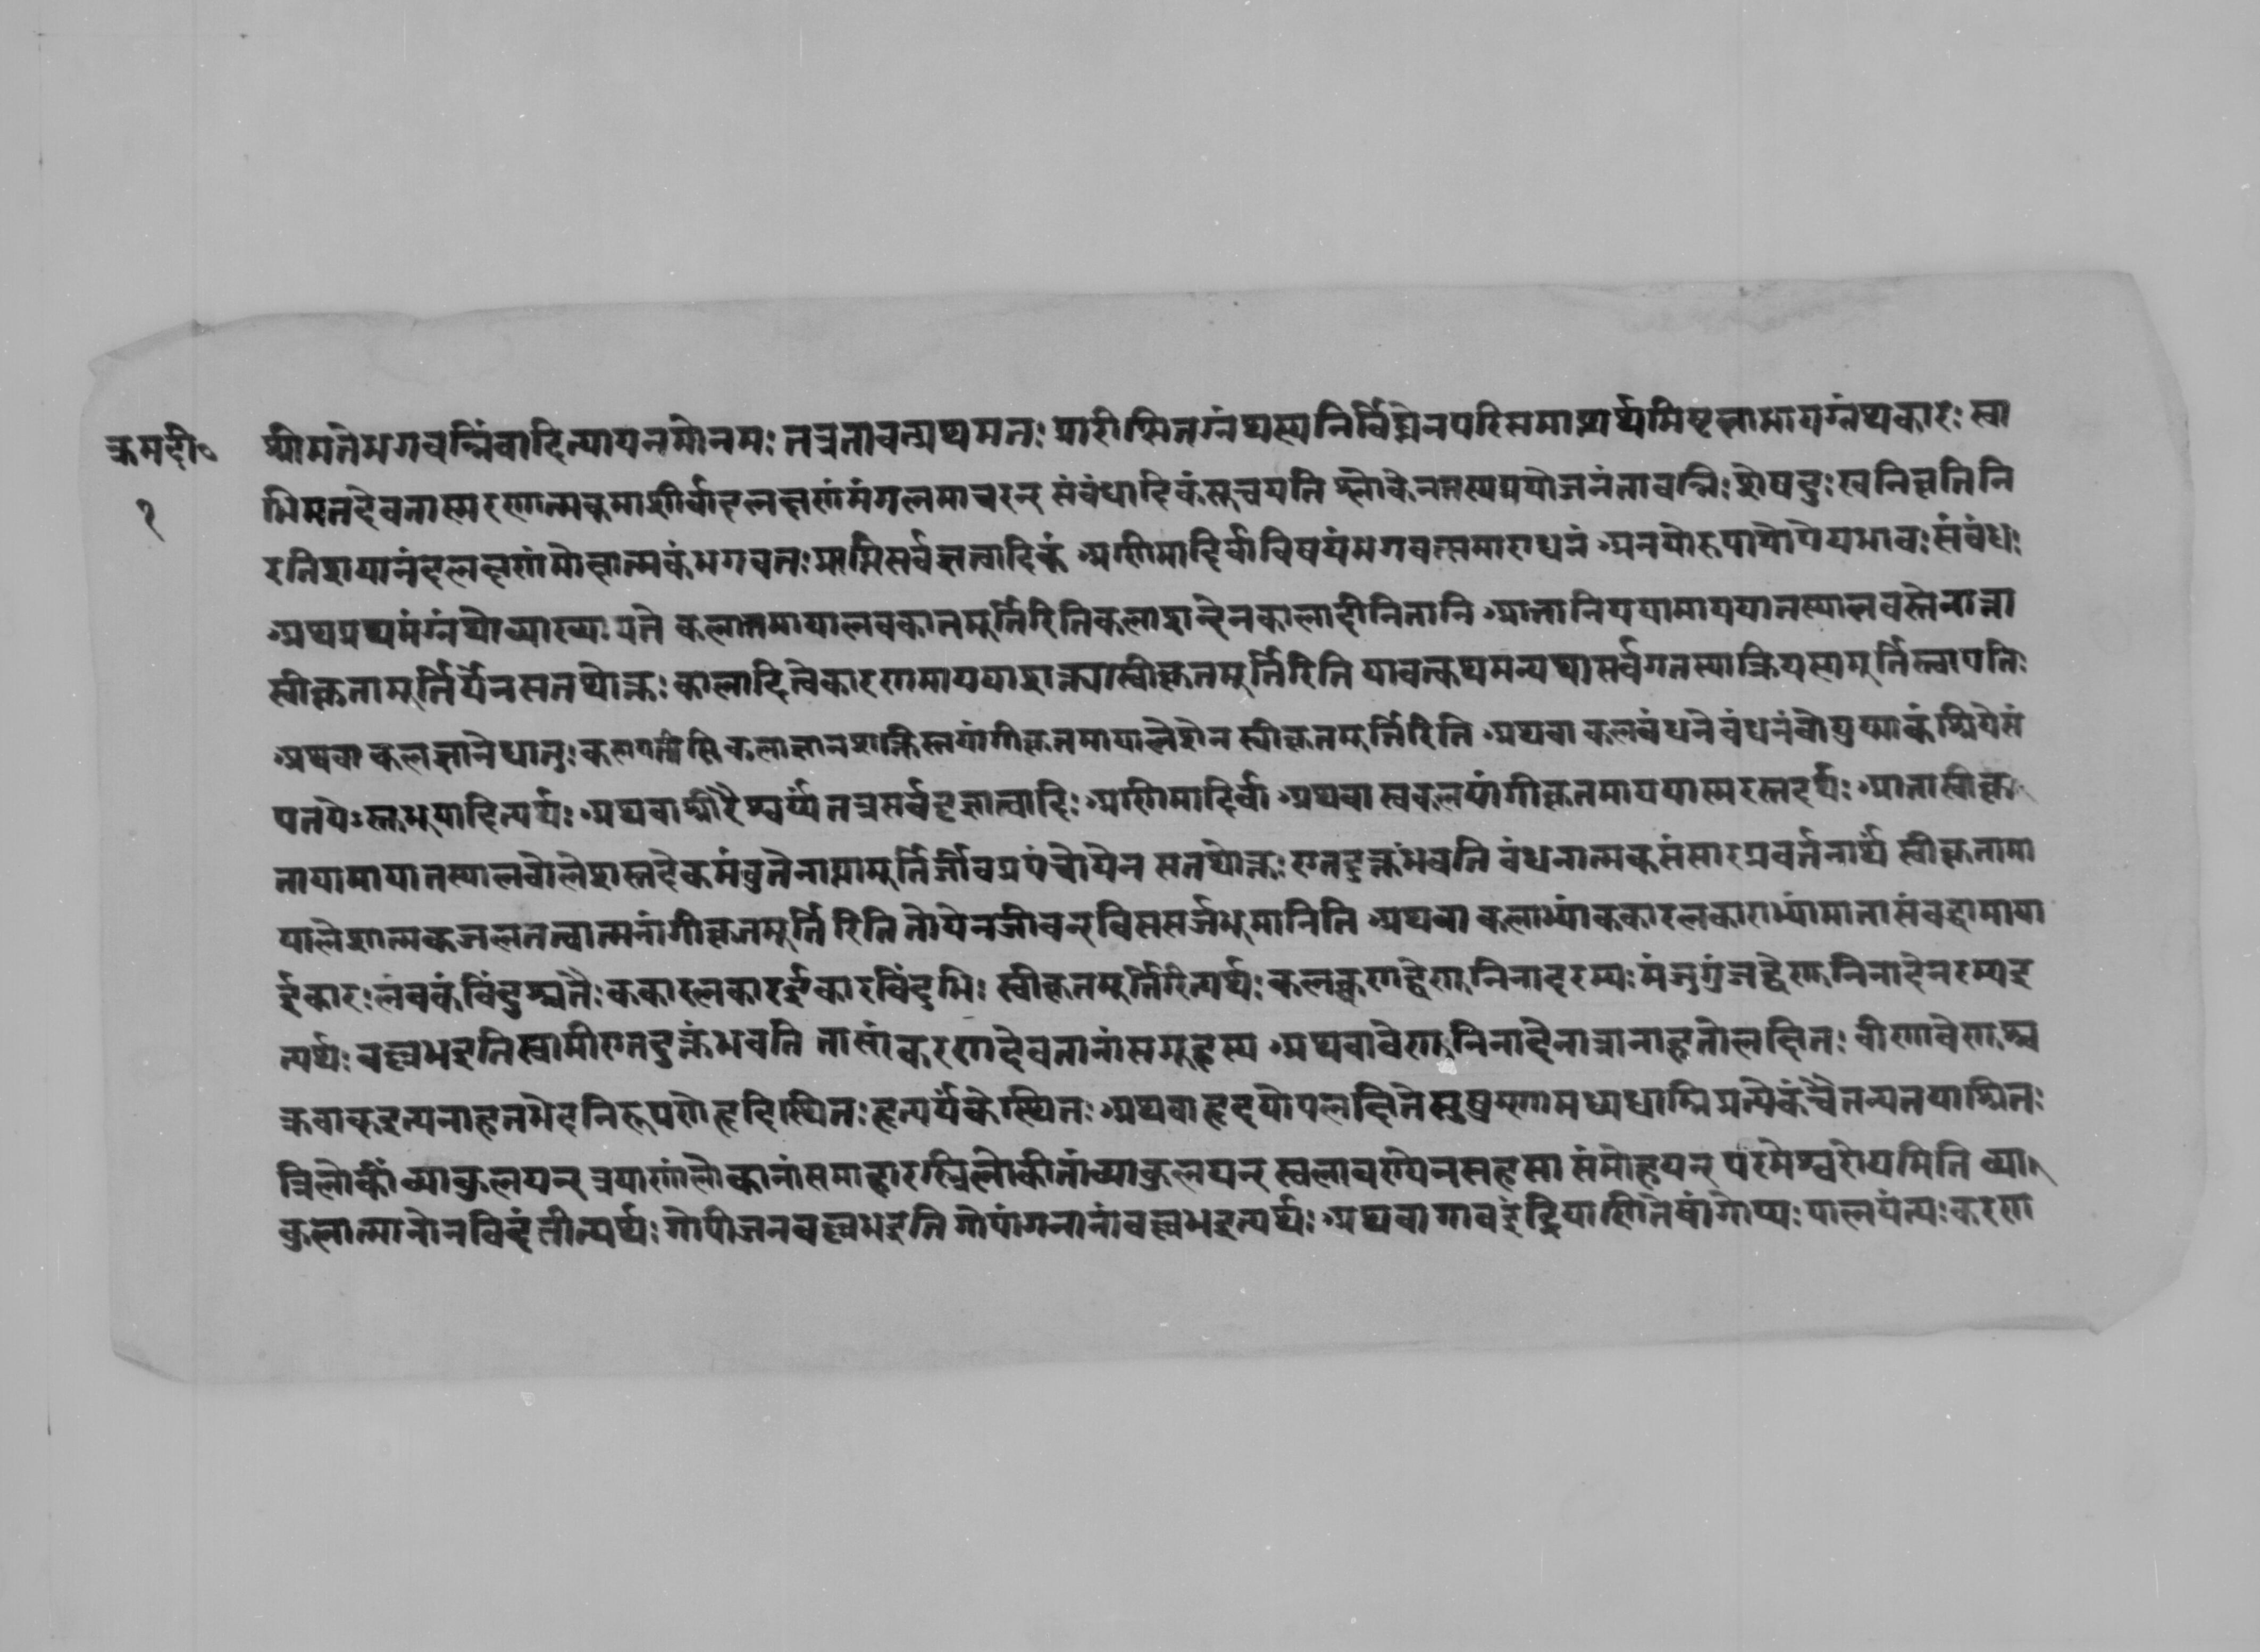 क्रमदी०
१
श्रीमतेभगवन्निंवादित्यायनमोनमः तत्रतावत्प्रथमतः प्रारीप्सितग्रंथस्यनिर्विघ्नेनपरिसमाप्त्यर्थमिष्टलाभायग्रंथकारः स्वा
भिमतदेवतास्मरणात्मकमाशीर्वादलक्षणंमंगलमाचरन् संबंधादिकंसूचयति श्लोकेनतस्यप्रयोजनंतावन्निःशेषदुःखनिवृतिनि
रतिशयानंदलक्षणंमोक्षात्मकंभगवतःप्राप्तिसर्वज्ञत्वादिकं अणिमादिर्वाविषयंभगवत्समाराधनं अनयोरूपायोपेयभावःसंबंधः
अथप्रथमंग्रंथोव्याख्यायते कलात्तमायालवकातमूर्त्तिरितिकलाशब्देनकालादीनितानि आत्तानिययामाययातस्यालवस्तेनात्ता
स्वीकृतामूर्त्तिर्येनसतथोक्तः कालादित्वेकारणमाययाशक्त्यास्वीकृतमूर्त्तिरिति यावत्कथमन्यथासर्वगतस्याक्रियस्यमूर्त्तिस्त्वापतिः
अथवा कलज्ञानेधातुः कलाज्ञानशक्तिस्तयांगीकृतमायालेशेन स्वीकृतमूर्त्तिरिति अथवा कलबंधनेबंधनंवोयुष्माकंश्रियेसं
पतयेऽस्तुभूयादित्यर्थः अथवाश्रीरैश्वर्य्यंतत्रसर्वदृज्ञत्वादिः अणिमादिर्वा अथवा स्वकलयांगीकृतमाययास्मरस्तदर्थः आत्तास्वीकृ
तायामायातस्यालवोलेशस्तदेकमंबुतेनाप्तामूर्त्तिर्जीवप्रपंचोयेन सतथोक्तः एतदुक्तंभवति बंधनात्मकसंसारप्रवर्तनार्थं स्वीकृतामा
यालेशात्मकजलतत्वात्मनांगीकृतमूर्त्तिरिति तोयेनजीवन्विससर्जभूमानिति अथवा कलाभ्यांककारलकाराभ्यामात्तासंवद्दामाया
ईकारःलंवकंविंदुश्चतैः ककारलकारईकारविंदुभिः स्वीकृतमूर्त्तिरित्यर्थः कलक्वणद्वेणुनिनादरम्यः मंजुगुंजद्वेणुनिनादेनरम्यइ
त्यर्थः वल्लभइतिस्वामीएतदुक्तंभवति तासां करणदेवतानांसमूहस्य अथवावेणुनिनादेनात्रानाहतोलक्षितः वीणावेणुश्च
क्रवाकइत्यनाहतभेदनिरूपणेहृदिस्थितः हृत्पर्यंकेस्थितः अथवाहृदयोपलक्षितेसुषुम्णामध्यधाम्निप्रत्येकंचैतन्यतयाश्रितः
त्रिलोकीं व्याकुलयन् त्रयाणांलोकानांसमाहारस्त्रिलोकीतांव्याकुलयन् स्वलावण्येनसहसा संमोहयन् परमेश्वरोयमिति व्या
कुलात्मानोनविदंतीत्यर्थः गोपीजनवल्लभइति गोपांगनानांवल्लभइत्यर्थः अथवा गावइंद्रियाणितेषांगोप्यः पालयंत्यः करण